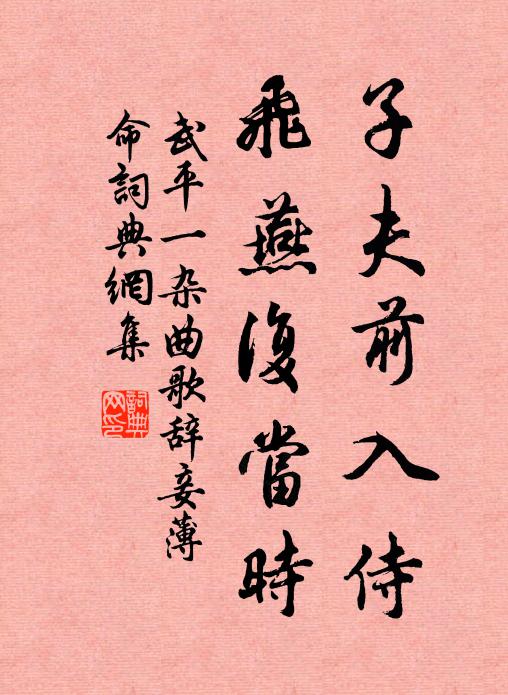 子夫前入侍
飛燕復當時
武平一杂曲歌辞妾薄
命詞典網集
詞典
网印